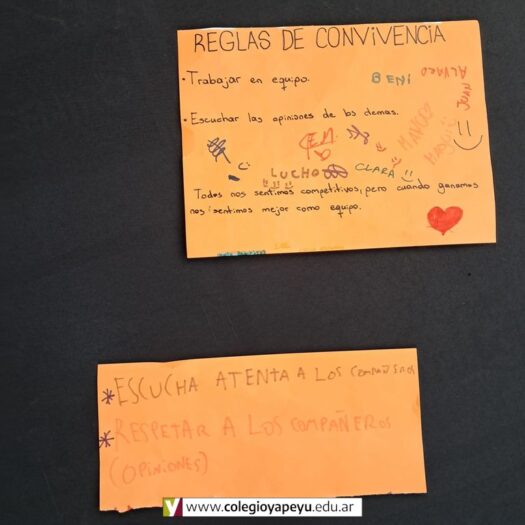 REGLAS DE CONVIVENCIA
• Trabajar en equipo.
BENI
ALVARO
JUAN
• Escuchar las opiniones de los demas.
MANCEO
LUCHO
CLARA
Todos nos sentimos competitivos, pero cuando ganamos
nos sentimos mejor como equipo.
* ESCUCHA ATENTA A LOS COMPAÑEROS
* RESPETAR A LOS COMPAÑEROS
(OPINIONES)
www.colegioyapeyu.edu.ar